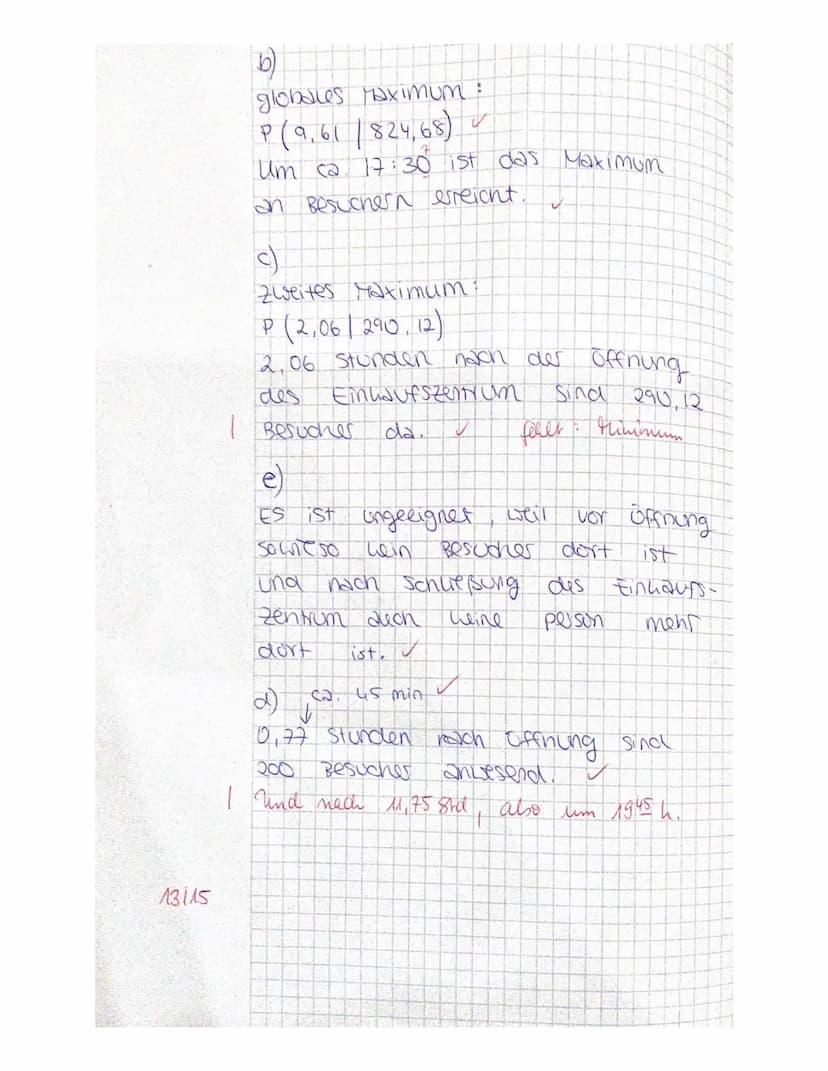 b)
globales Maximum:
P(9,61 | 824,68) ✓
Um ca. 17:30 ist das Maximum
an Besuchern erreicht. ✓
c)
zweites Maximum:
P(2,06 | 290,12)
2,06 Stunden nach der Öffnung
des Einkaufszentrum sind 290,12
| Besucher da. ✓ fehlt: Minimum
e)
Es ist ungeeignet, weil vor Öffnung
sowieso kein Besucher dort ist
und nach Schließung des Einkaufs-
zentrum auch keine person mehr
dort ist. ✓
d) ca. 45 min ✓
↓
0,77 Stunden nach Öffnung sind
200 Besucher anwesend. ✓
| Und nach 11,75 Std, also um 19 45 h.
13/15